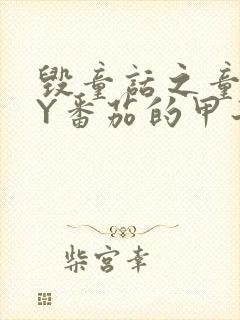 毁童话之童
Y番茄的甲
柴宫幸